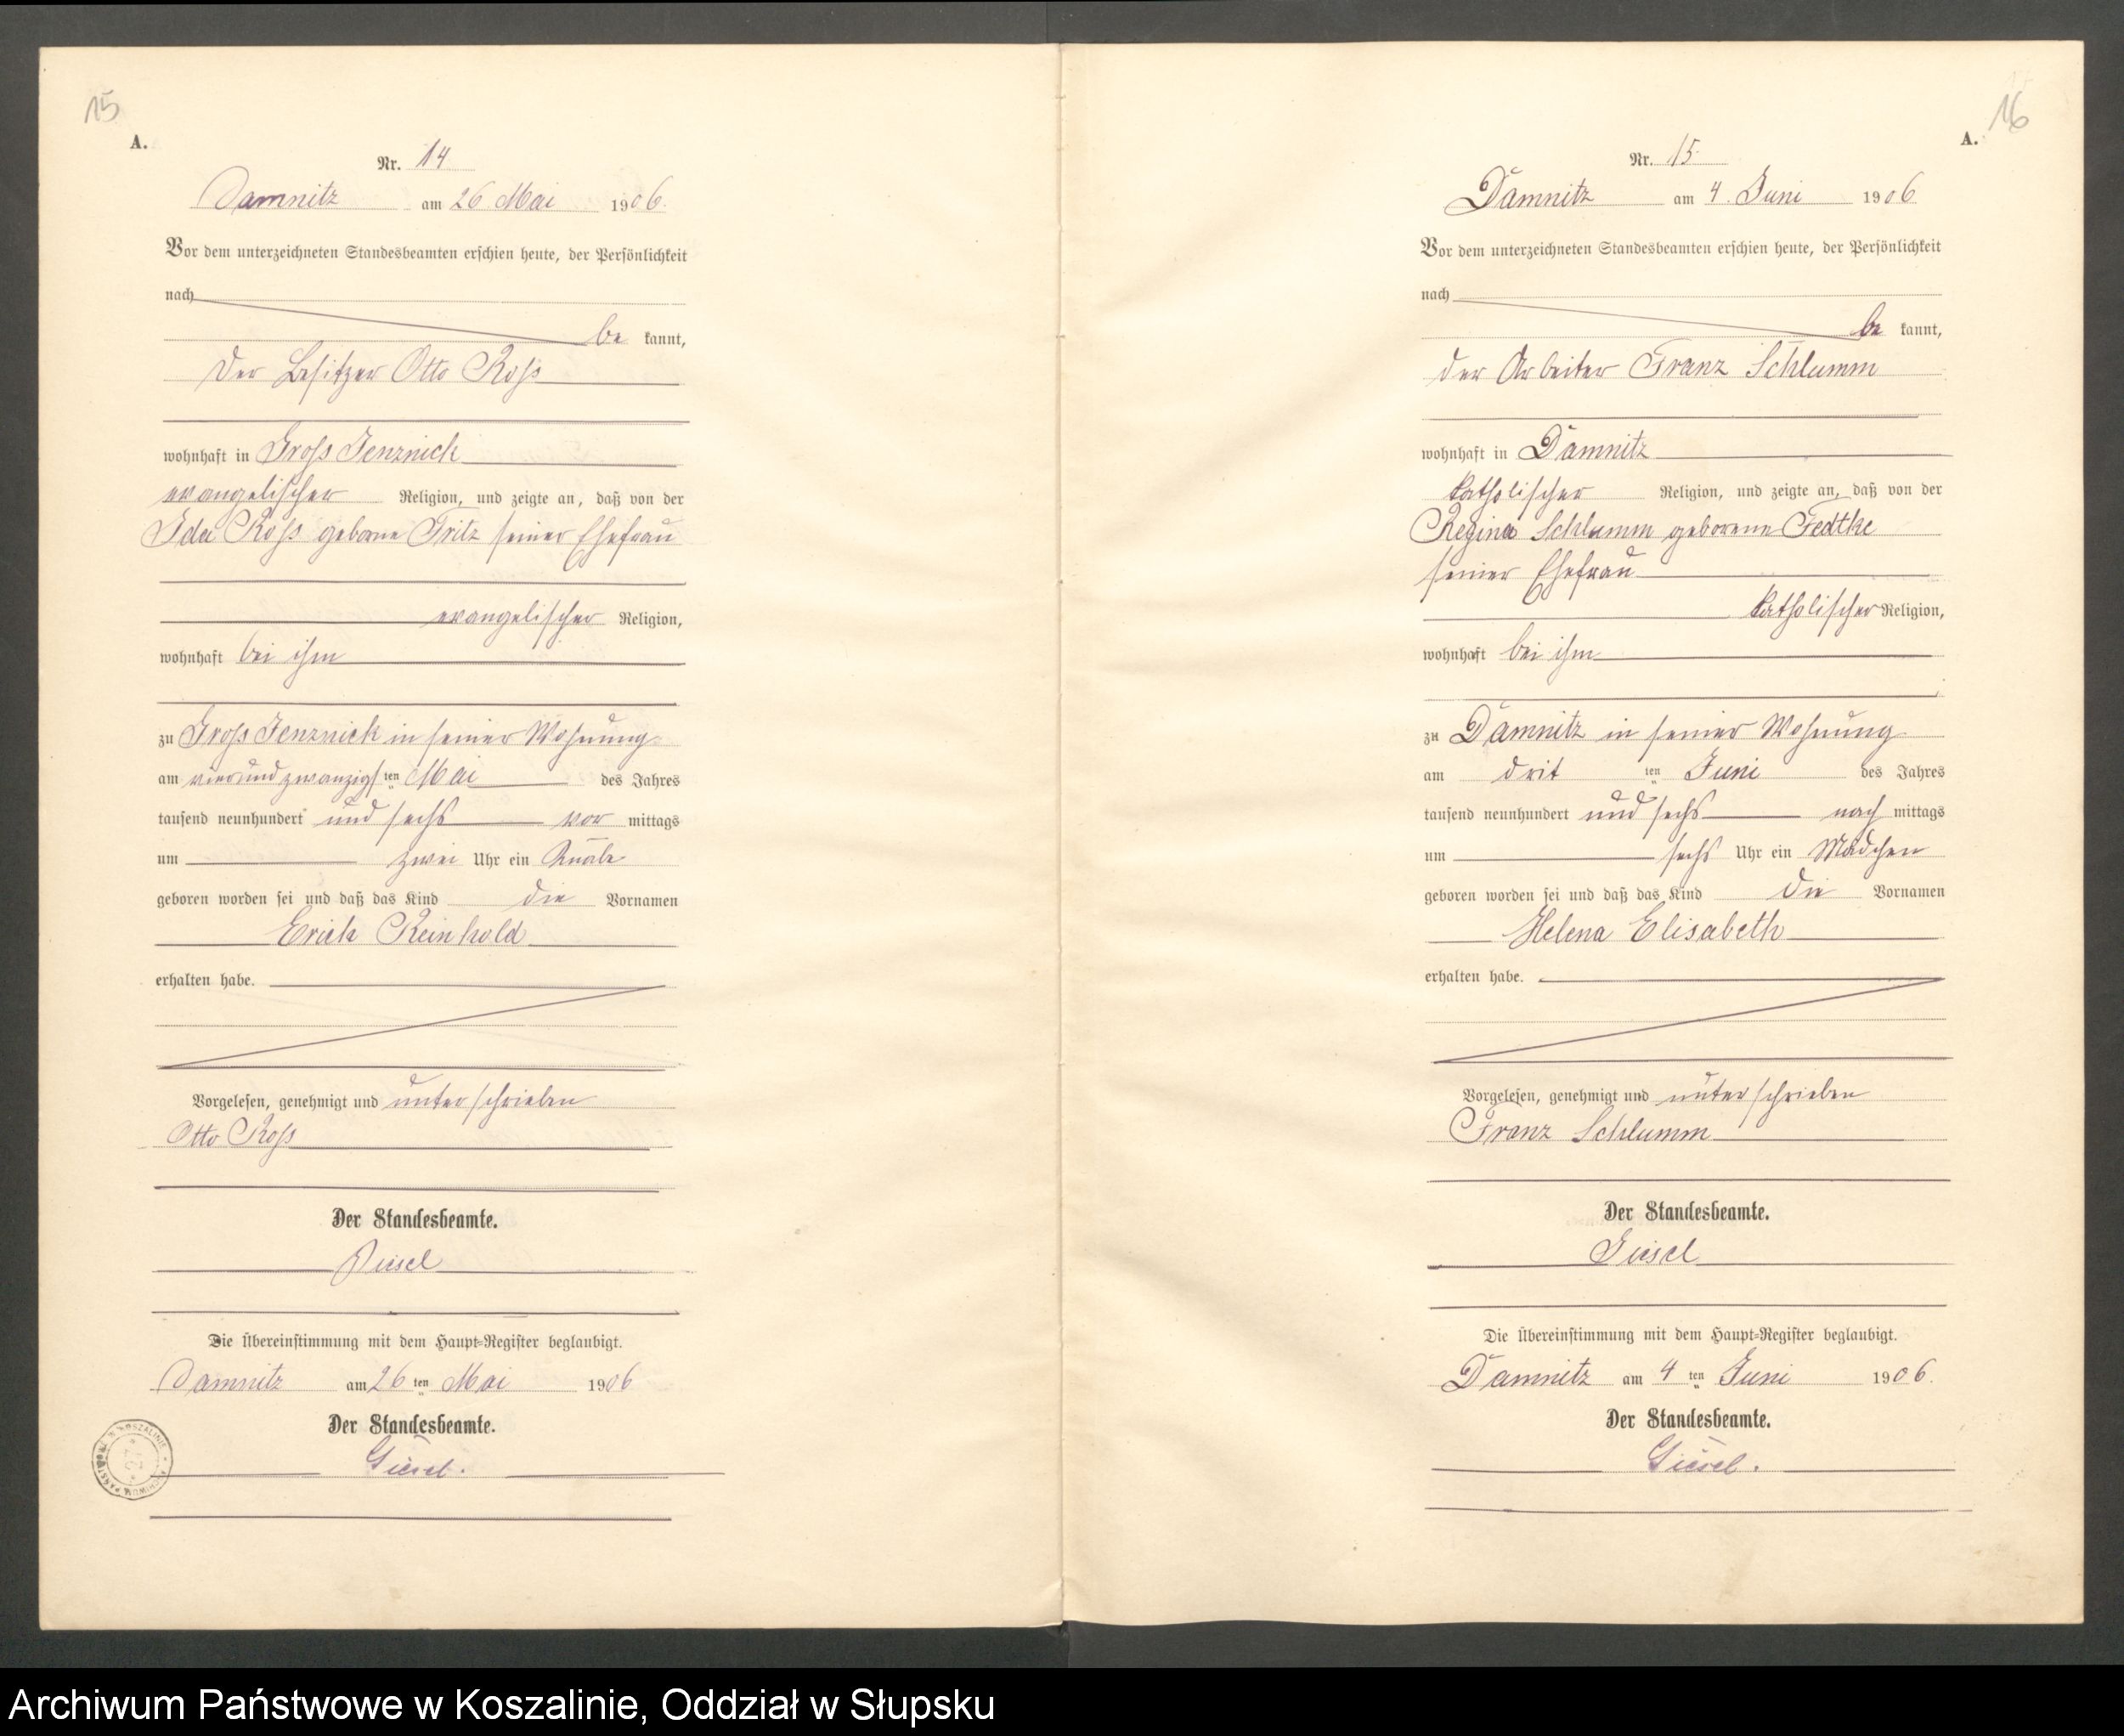 15
A.
Nr. 14
Damnitz am 26. Mai 1906.
Vor dem unterzeichneten Standesbeamten erschien heute, der Persönlichkeit
nach
be kannt,
der Besitzer Otto Roß
wohnhaft in Groß Jenznick
evangelischer Religion, und zeigte an, daß von der
Ida Roß geborne Fritz seiner Ehefrau
evangelischer Religion,
wohnhaft bei ihm
zu Groß Jenznick in seiner Wohnung
am vierundzwanzigs ten Mai des Jahres
tausend neunhundert und sechs vor mittags
um zwei Uhr ein Knabe
geboren worden sei und daß das Kind die Vornamen
Erich Reinhold
erhalten habe.
Vorgelesen, genehmigt und unterschrieben
Otto Roß
Der Standesbeamte.
Giesel
Die Übereinstimmung mit dem Haupt-Register beglaubigt.
Damnitz am 26 ten Mai 1906
Der Standesbeamte.
Giesel.
ARCHIWUM PAŃSTWOWE W KOSZALINIE
16
A.
Nr. 15.
Damnitz am 4. Juni 1906
Vor dem unterzeichneten Standesbeamten erschien heute, der Persönlichkeit
nach
be kannt,
der Arbeiter Franz Schlumm
wohnhaft in Damnitz
katholischer Religion, und zeigte an, daß von der
Regina Schlumm geborene Fedtke
seiner Ehefrau
katholischer Religion,
wohnhaft bei ihm
zu Damnitz in seiner Wohnung
am drit ten Juni des Jahres
tausend neunhundert und sechs nach mittags
um sechs Uhr ein Mädchen
geboren worden sei und daß das Kind die Vornamen
Helena Elisabeth
erhalten habe.
Vorgelesen, genehmigt und unterschrieben
Franz Schlumm
Der Standesbeamte.
Giesel
Die Übereinstimmung mit dem Haupt-Register beglaubigt.
Damnitz am 4 ten Juni 1906.
Der Standesbeamte.
Giesel.
Archiwum Państwowe w Koszalinie, Oddział w Słupsku